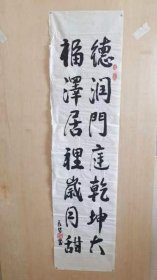 德润門庭乾坤大
福澤居裡歲月甜